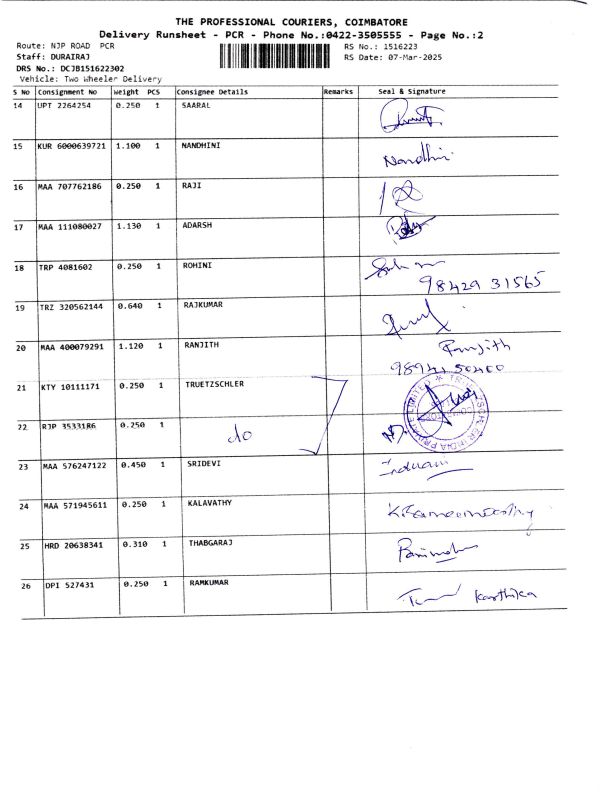 THE PROFESSIONAL COURIERS, COIMBATORE
Delivery Runsheet - PCR - Phone No.:0422-3505555 - Page No.:2
Route: NJP ROAD PCR RS No.: 1516223
Staff: DURAIRAJ RS Date: 07-Mar-2025
DRS No.: DCJB151622302
Vehicle: Two Wheeler Delivery
S No Consignment No Weight PCS Consignee Details Remarks Seal & Signature
14 UPT 2264254 0.250 1 SAARAL
15 KUR 6000639721 1.100 1 NANDHINI Nandhini
16 MAA 707762186 0.250 1 RAJI
17 MAA 111080027 1.130 1 ADARSH
18 TRP 4081602 0.250 1 ROHINI
98429 31565
19 TRZ 320562144 0.640 1 RAJKUMAR
20 MAA 400079291 1.120 1 RANJITH Ranjith
98942 50400
21 KTY 10111171 0.250 1 TRUETZSCHLER
22 RJP 3533186 0.250 1 do
23 MAA 576247122 0.450 1 SRIDEVI
24 MAA 571945611 0.250 1 KALAVATHY
25 HRD 20638341 0.310 1 THABGARAJ
26 DPI 527431 0.250 1 RAMKUMAR Karthika